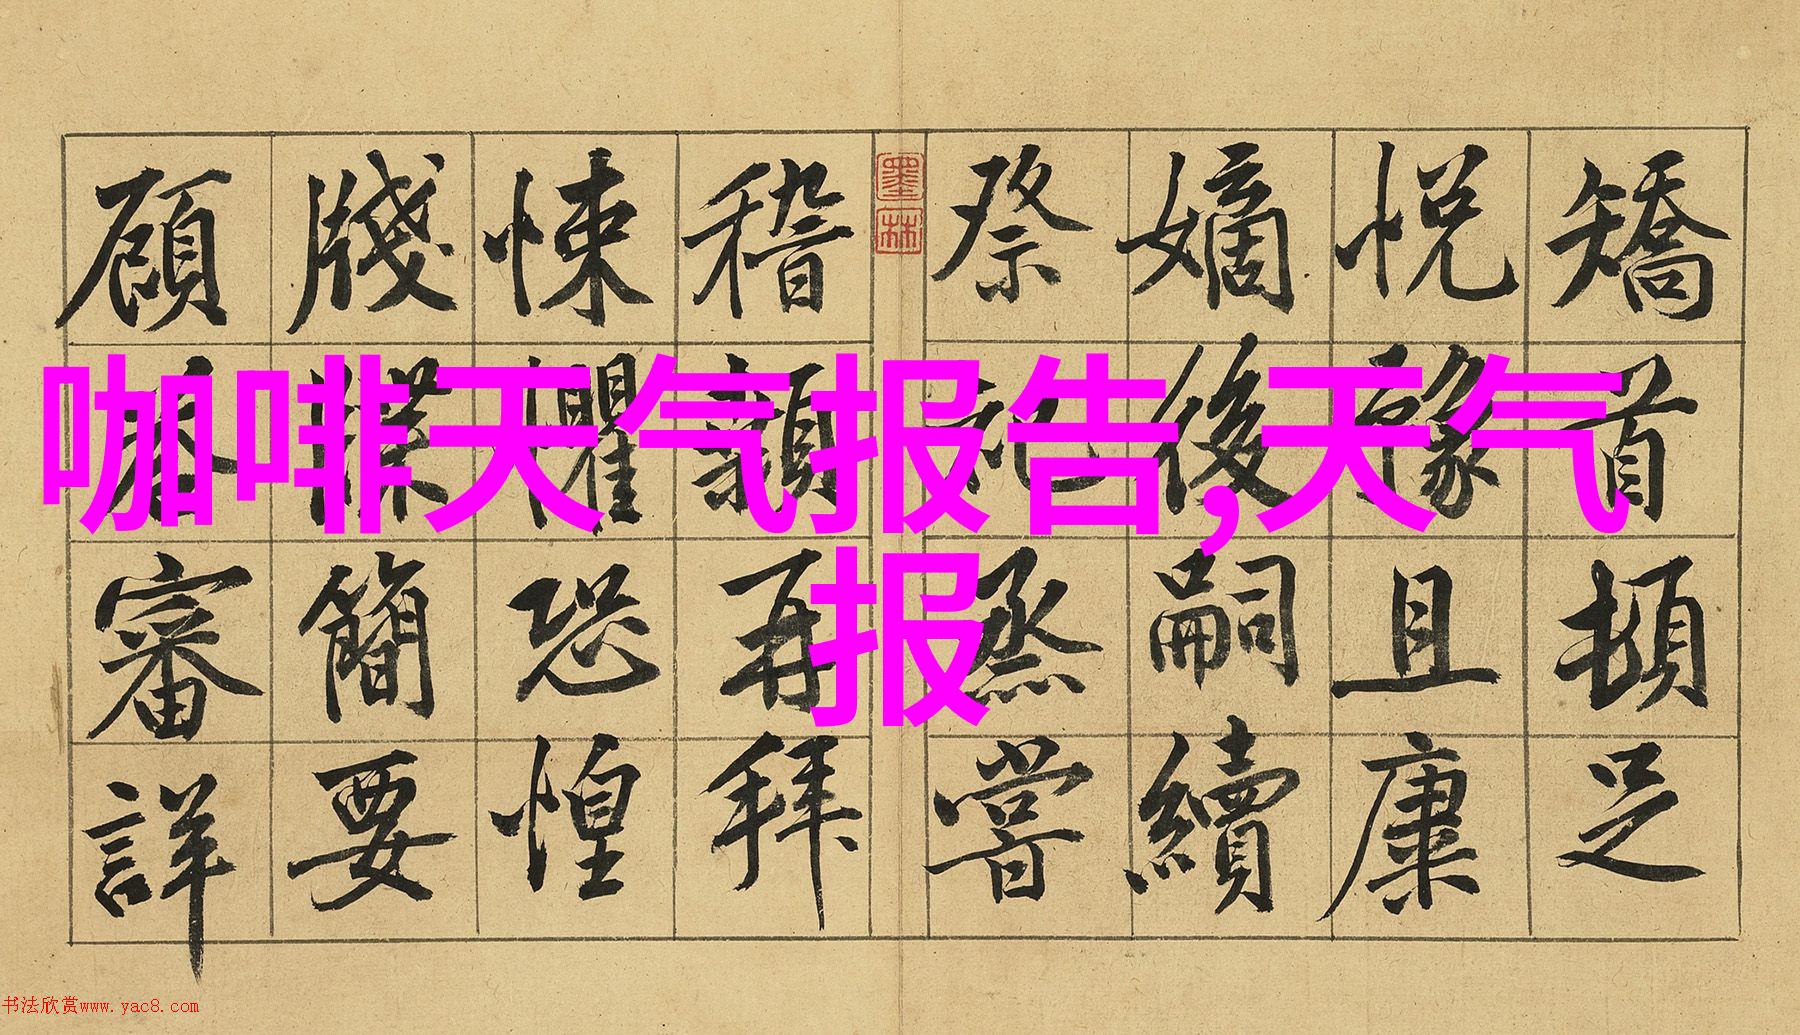 咖啡天气报告,天气
报
矯首頓足
悅豫且康
嫡後嗣續
祭祀烝嘗
墨林
稽顙再拜
悚懼恐惶
牋牒簡要
顧答審詳
书法欣赏www.yac8.com